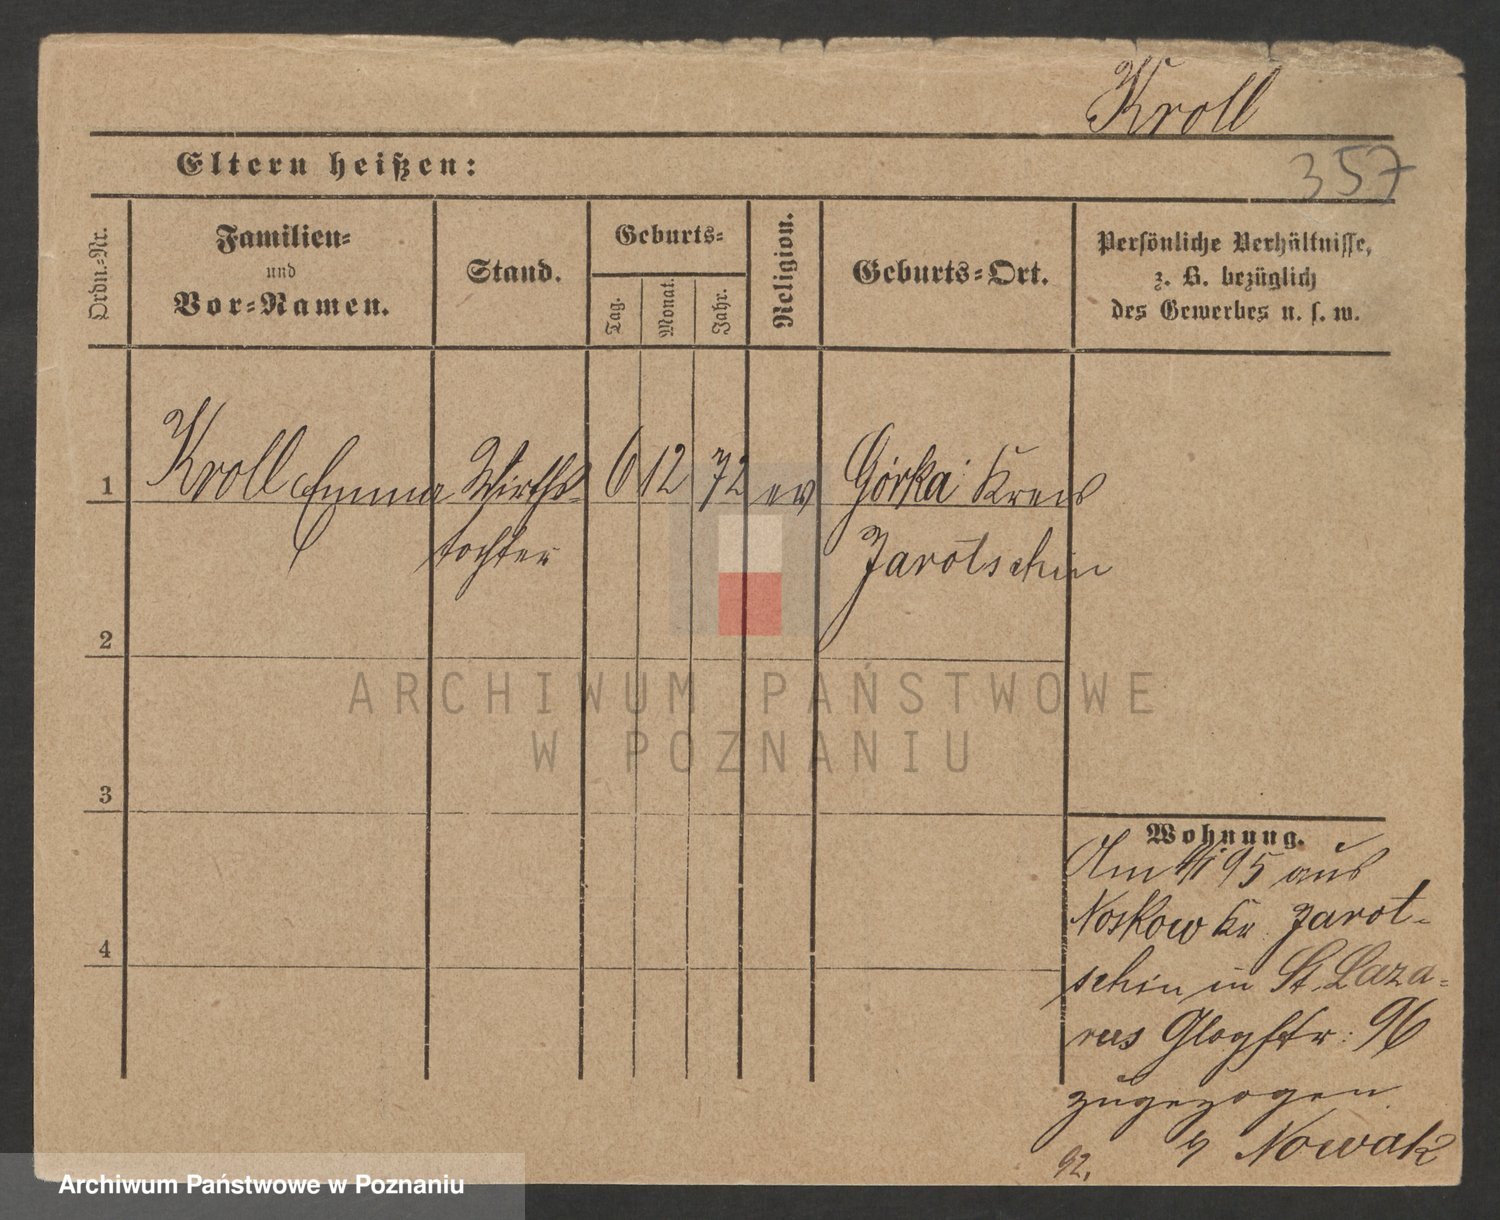 Kroll
Eltern heißen:
357
Ordn.-Nr.
Familien-
und
Vor-Namen.
Stand.
Geburts-
Tag.
Monat.
Jahr.
Religion.
Geburts-Ort.
Persönliche Verhältnisse,
z. B. bezüglich
des Gewerbes u. s. w.
1
Kroll Emma
Wirths-
tochter
6
12
72
ev
Górka Kreis
Jarotschin
2
3
4
Wohnung.
Am 95 aus
Noskow Kr. Jarot-
schin in St. Laza-
rus Glogstr: 96
zugezogen
Nowak
92.
ARCHIWUM PAŃSTWOWE
W POZNANIU
Archiwum Państwowe w Poznaniu